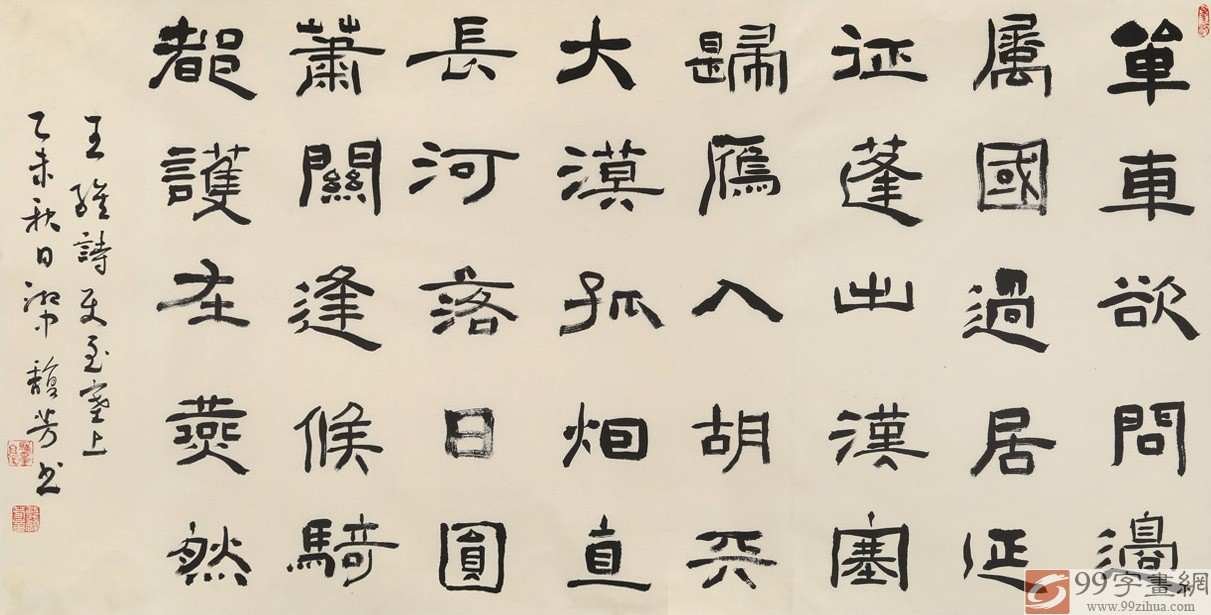 單車欲問邊
屬國過居延
征蓬出漢塞
歸鴈入胡天
大漠孤烟直
長河落日圓
蕭關逢候騎
都護在燕然
王維詩使至塞上
乙未秋日梁馥芳书
99字畫網
www.99zihua.com